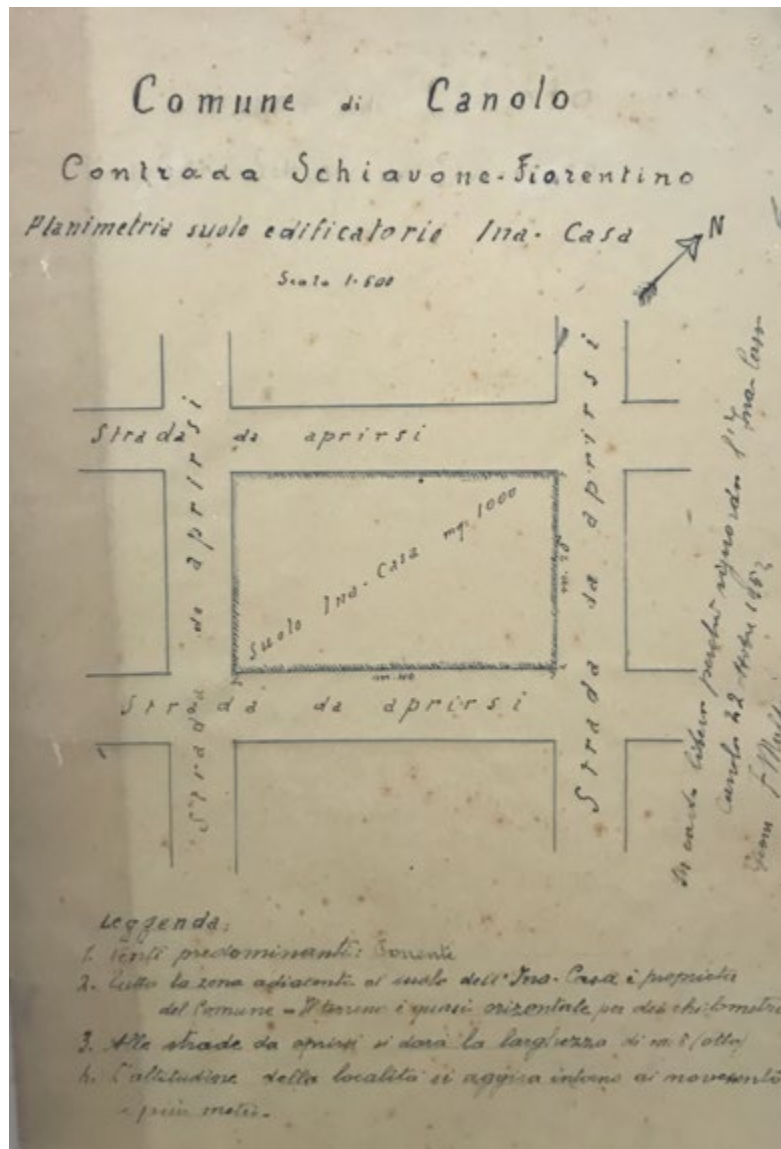 Comune di Canolo
Contrada Schiavone-Fiorentino
Planimetria suolo edificatorio Ina-Casa
Scala 1:500
N
Strada da aprirsi
Strada da aprirsi
Strada da aprirsi
Strada da aprirsi
Suolo Ina-Casa mq. 1000
m. 25
m. 40
In carta libera perché riguarda l'Ina-Casa
Canolo 22
Leggenda:
1. Venti predominanti: Ponente
2. Tutta la zona adiacente al suolo dell'Ina-Casa è proprietà
del Comune - Il terreno è quasi orizontale per due chilometri
3. Alle strade da aprirsi si darà la larghezza di m. 8 (otto)
4. L'altitudine della località si aggira intorno ai novecento
e più metri.